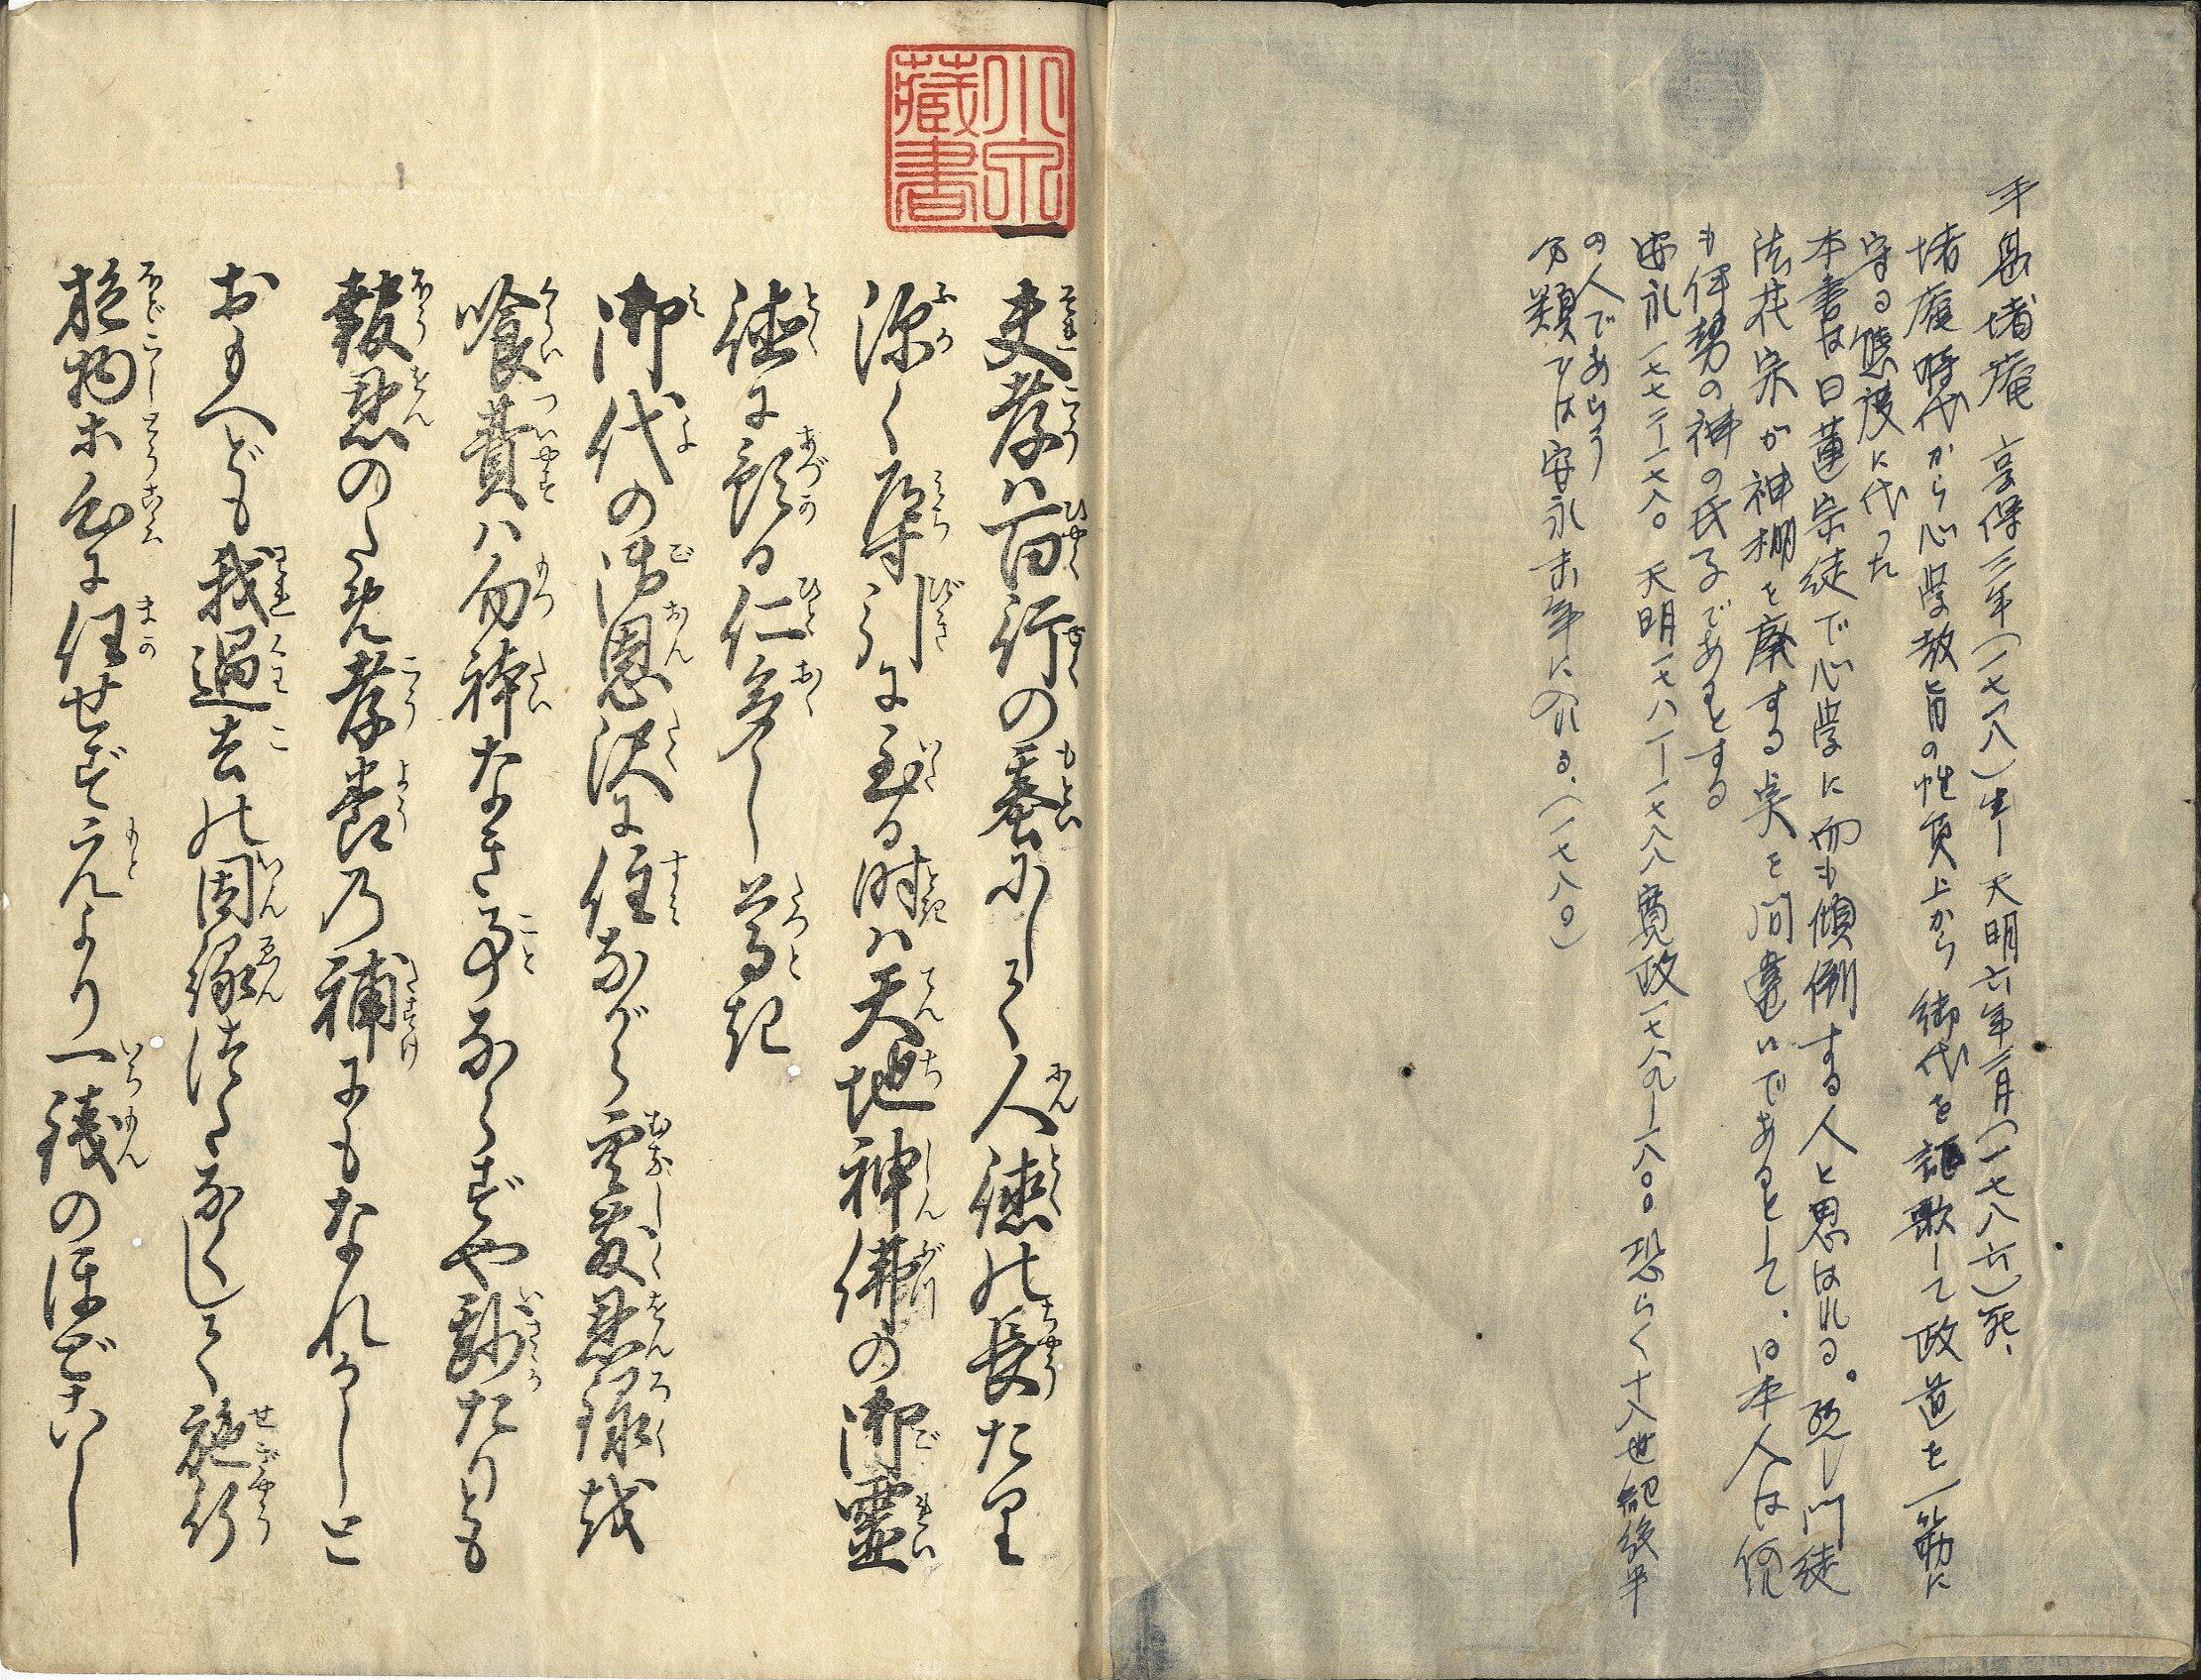 手島堵庵 享保三年(一七一八)生ー天明六年二月(一七八六)死、
堵庵時代から心学教旨の性質上から 御代を謳歌して政道を一筋に
守る態度に代った
本書は日蓮宗徒で心学に而も傾倒する人と思はれる。 門徒
法花宗が神棚を廃する失を間違いであるとして、日本人は何れ
も伊勢の神の氏子であるとする
安永 一七七二ー一七八〇 天明一七八一ー一七八八 寛政一七八九ー一八〇〇 恐らく十八世紀後半
の人であらう
分類では安永末年に入れる、(一七八〇)
小泉藏書
一
夫孝ハ百行の基にして人徳の長たり
深く 引に至る時ハ天地神佛の御霊
徳に預る仁多し尊き
御代の御恩沢に住ながら空敷恩禄を
喰費ハ勿躰なき事ならずや 聊たりとも
報恩のため孝養の補にもなれかしと
おもへども我過去の因縁つたなくして施行
施物等心に任せずもとより一銭のほどこし